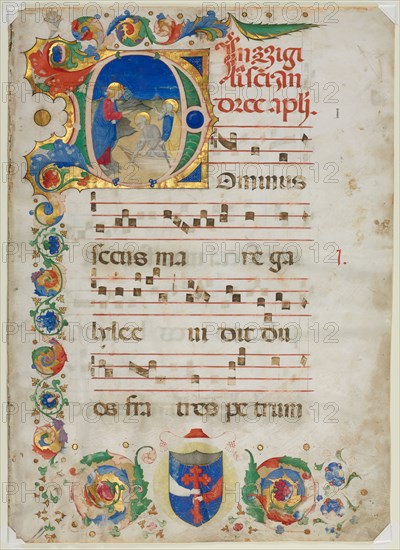 In vigi
l' sci An
dree apli.
Dominus
secus ma re ga
lylee ui dit du
os fra tres pe trum